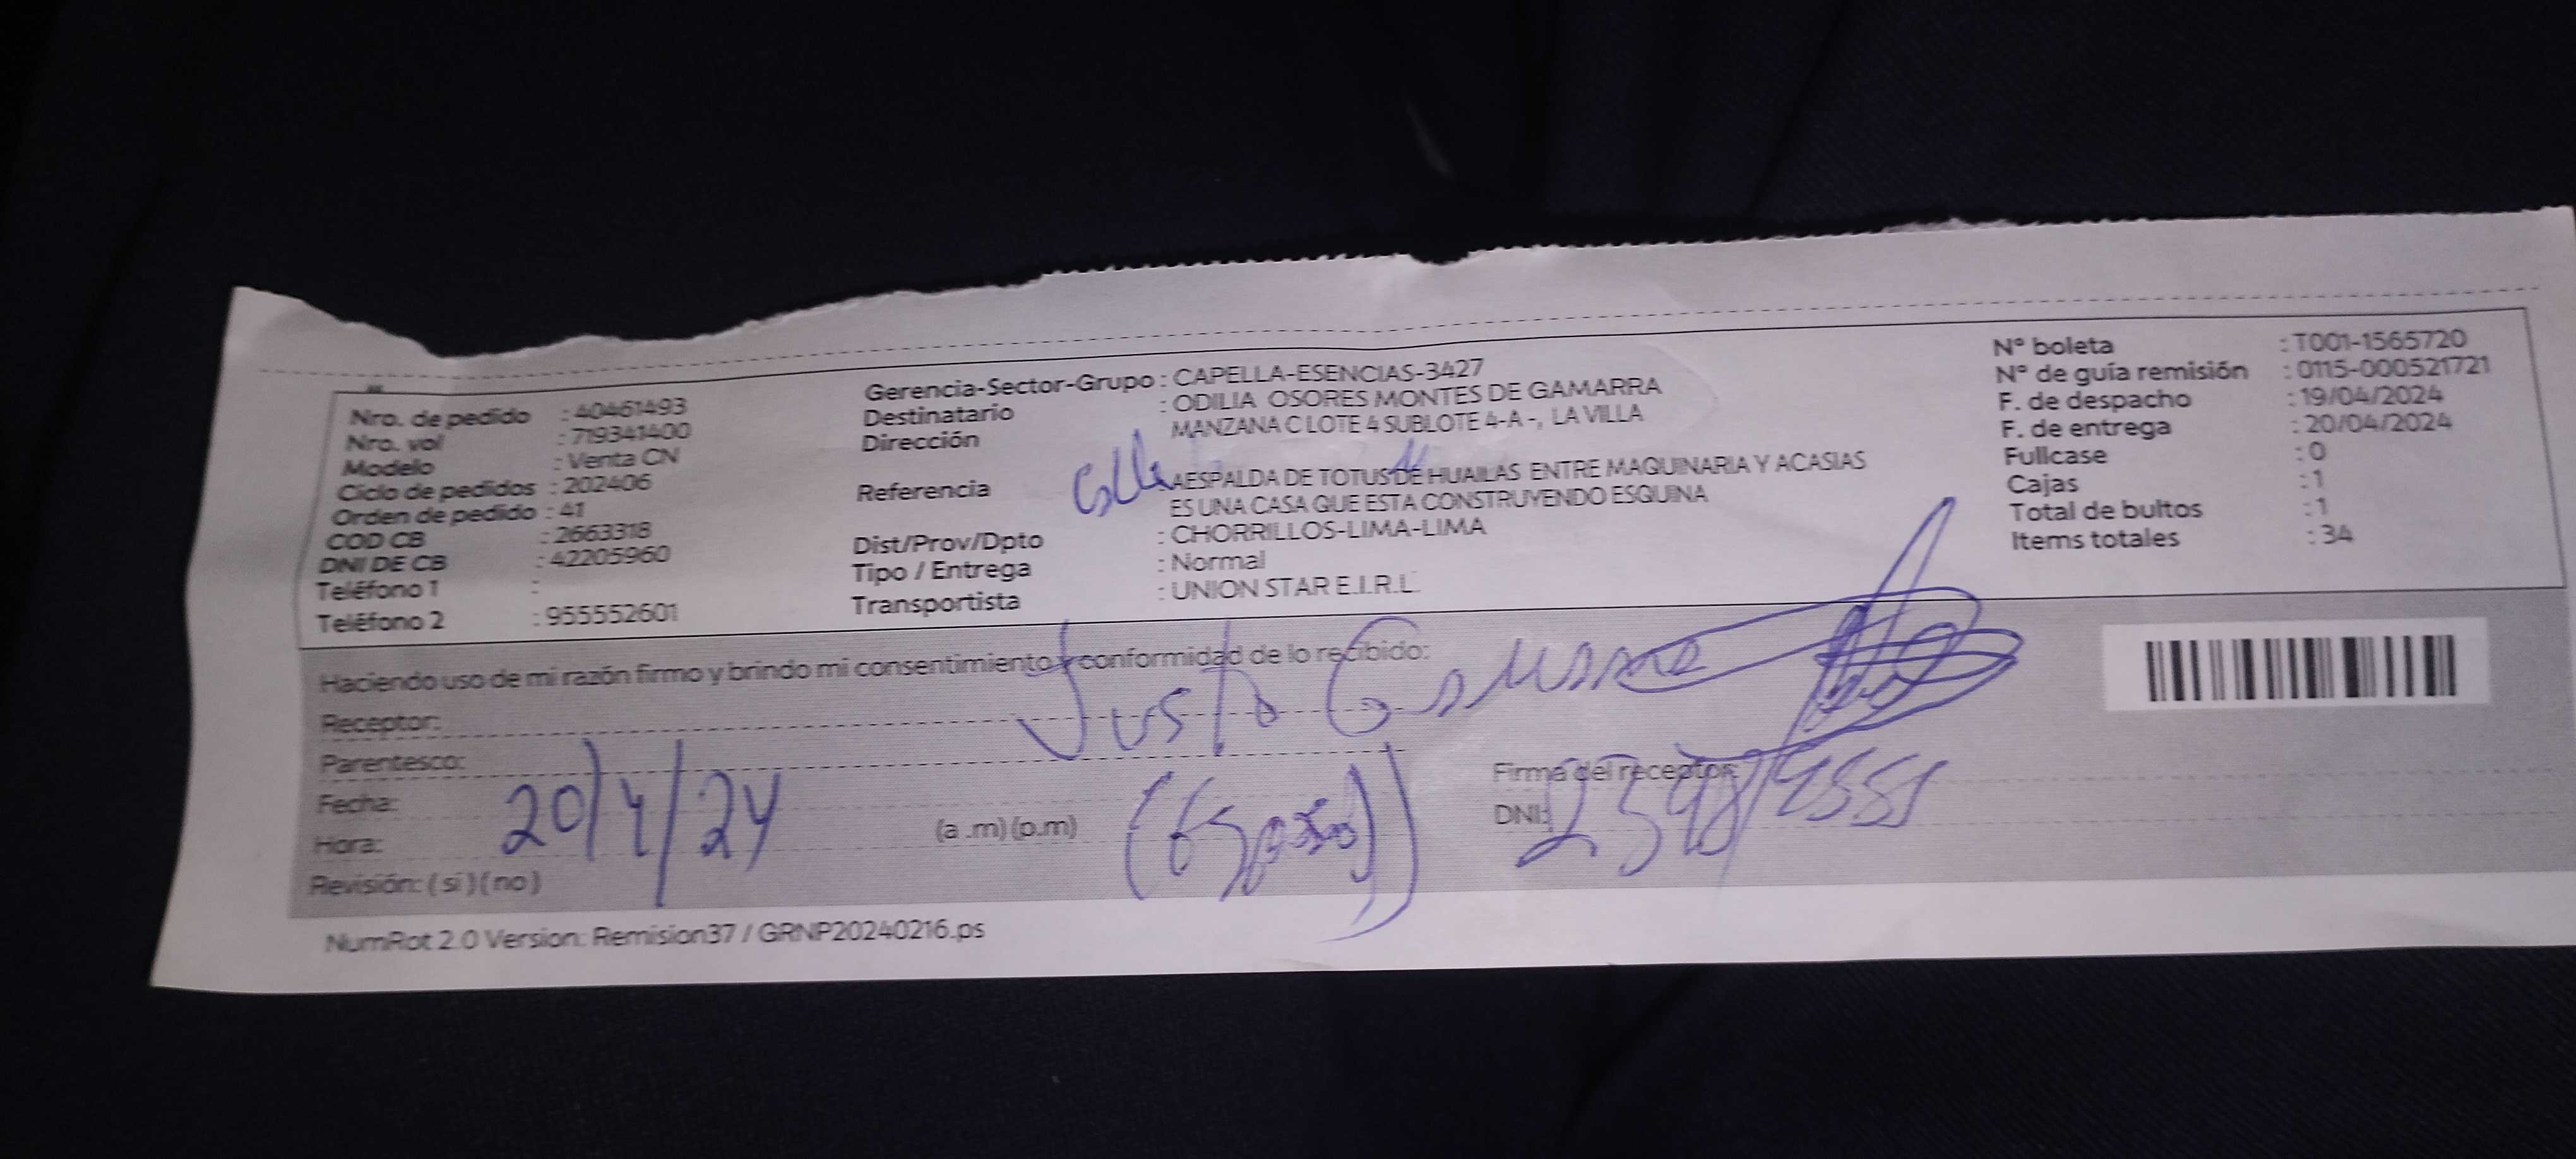 Nro. de pedido : 40461493
Nro. vol : 719341400
Modelo : Venta CN
Ciclo de pedidos : 202406
Orden de pedido : 41
COD CB : 2663318
DNI DE CB : 42205960
Teléfono 1 :
Teléfono 2 : 955552601
Gerencia-Sector-Grupo : CAPELLA-ESENCIAS-3427
Destinatario : ODILIA OSORES MONTES DE GAMARRA
Dirección MANZANA C LOTE 4 SUBLOTE 4-A -, LA VILLA
Calle
Referencia : AESPALDA DE TOTUS DE HUAILAS ENTRE MAQUINARIA Y ACASIAS
ES UNA CASA QUE ESTA CONSTRUYENDO ESQUINA
Dist/Prov/Dpto : CHORRILLOS-LIMA-LIMA
Tipo / Entrega : Normal
Transportista : UNION STAR E.I.R.L.
N° boleta : T001-1565720
N° de guía remisión : 0115-000521721
F. de despacho : 19/04/2024
F. de entrega : 20/04/2024
Fullcase : 0
Cajas : 1
Total de bultos : 1
Items totales : 34
Haciendo uso de mi razón firmo y brindo mi consentimiento y conformidad de lo recibido:
Receptor: Justo
Parentesco: (Esposo)
Fecha: 20/4/24
Hora: (a .m) (p.m)
Revisión: ( si ) ( no )
Firma del receptor:
DNI:
NumRot 2.0 Version: Remision37 / GRNP20240216.ps